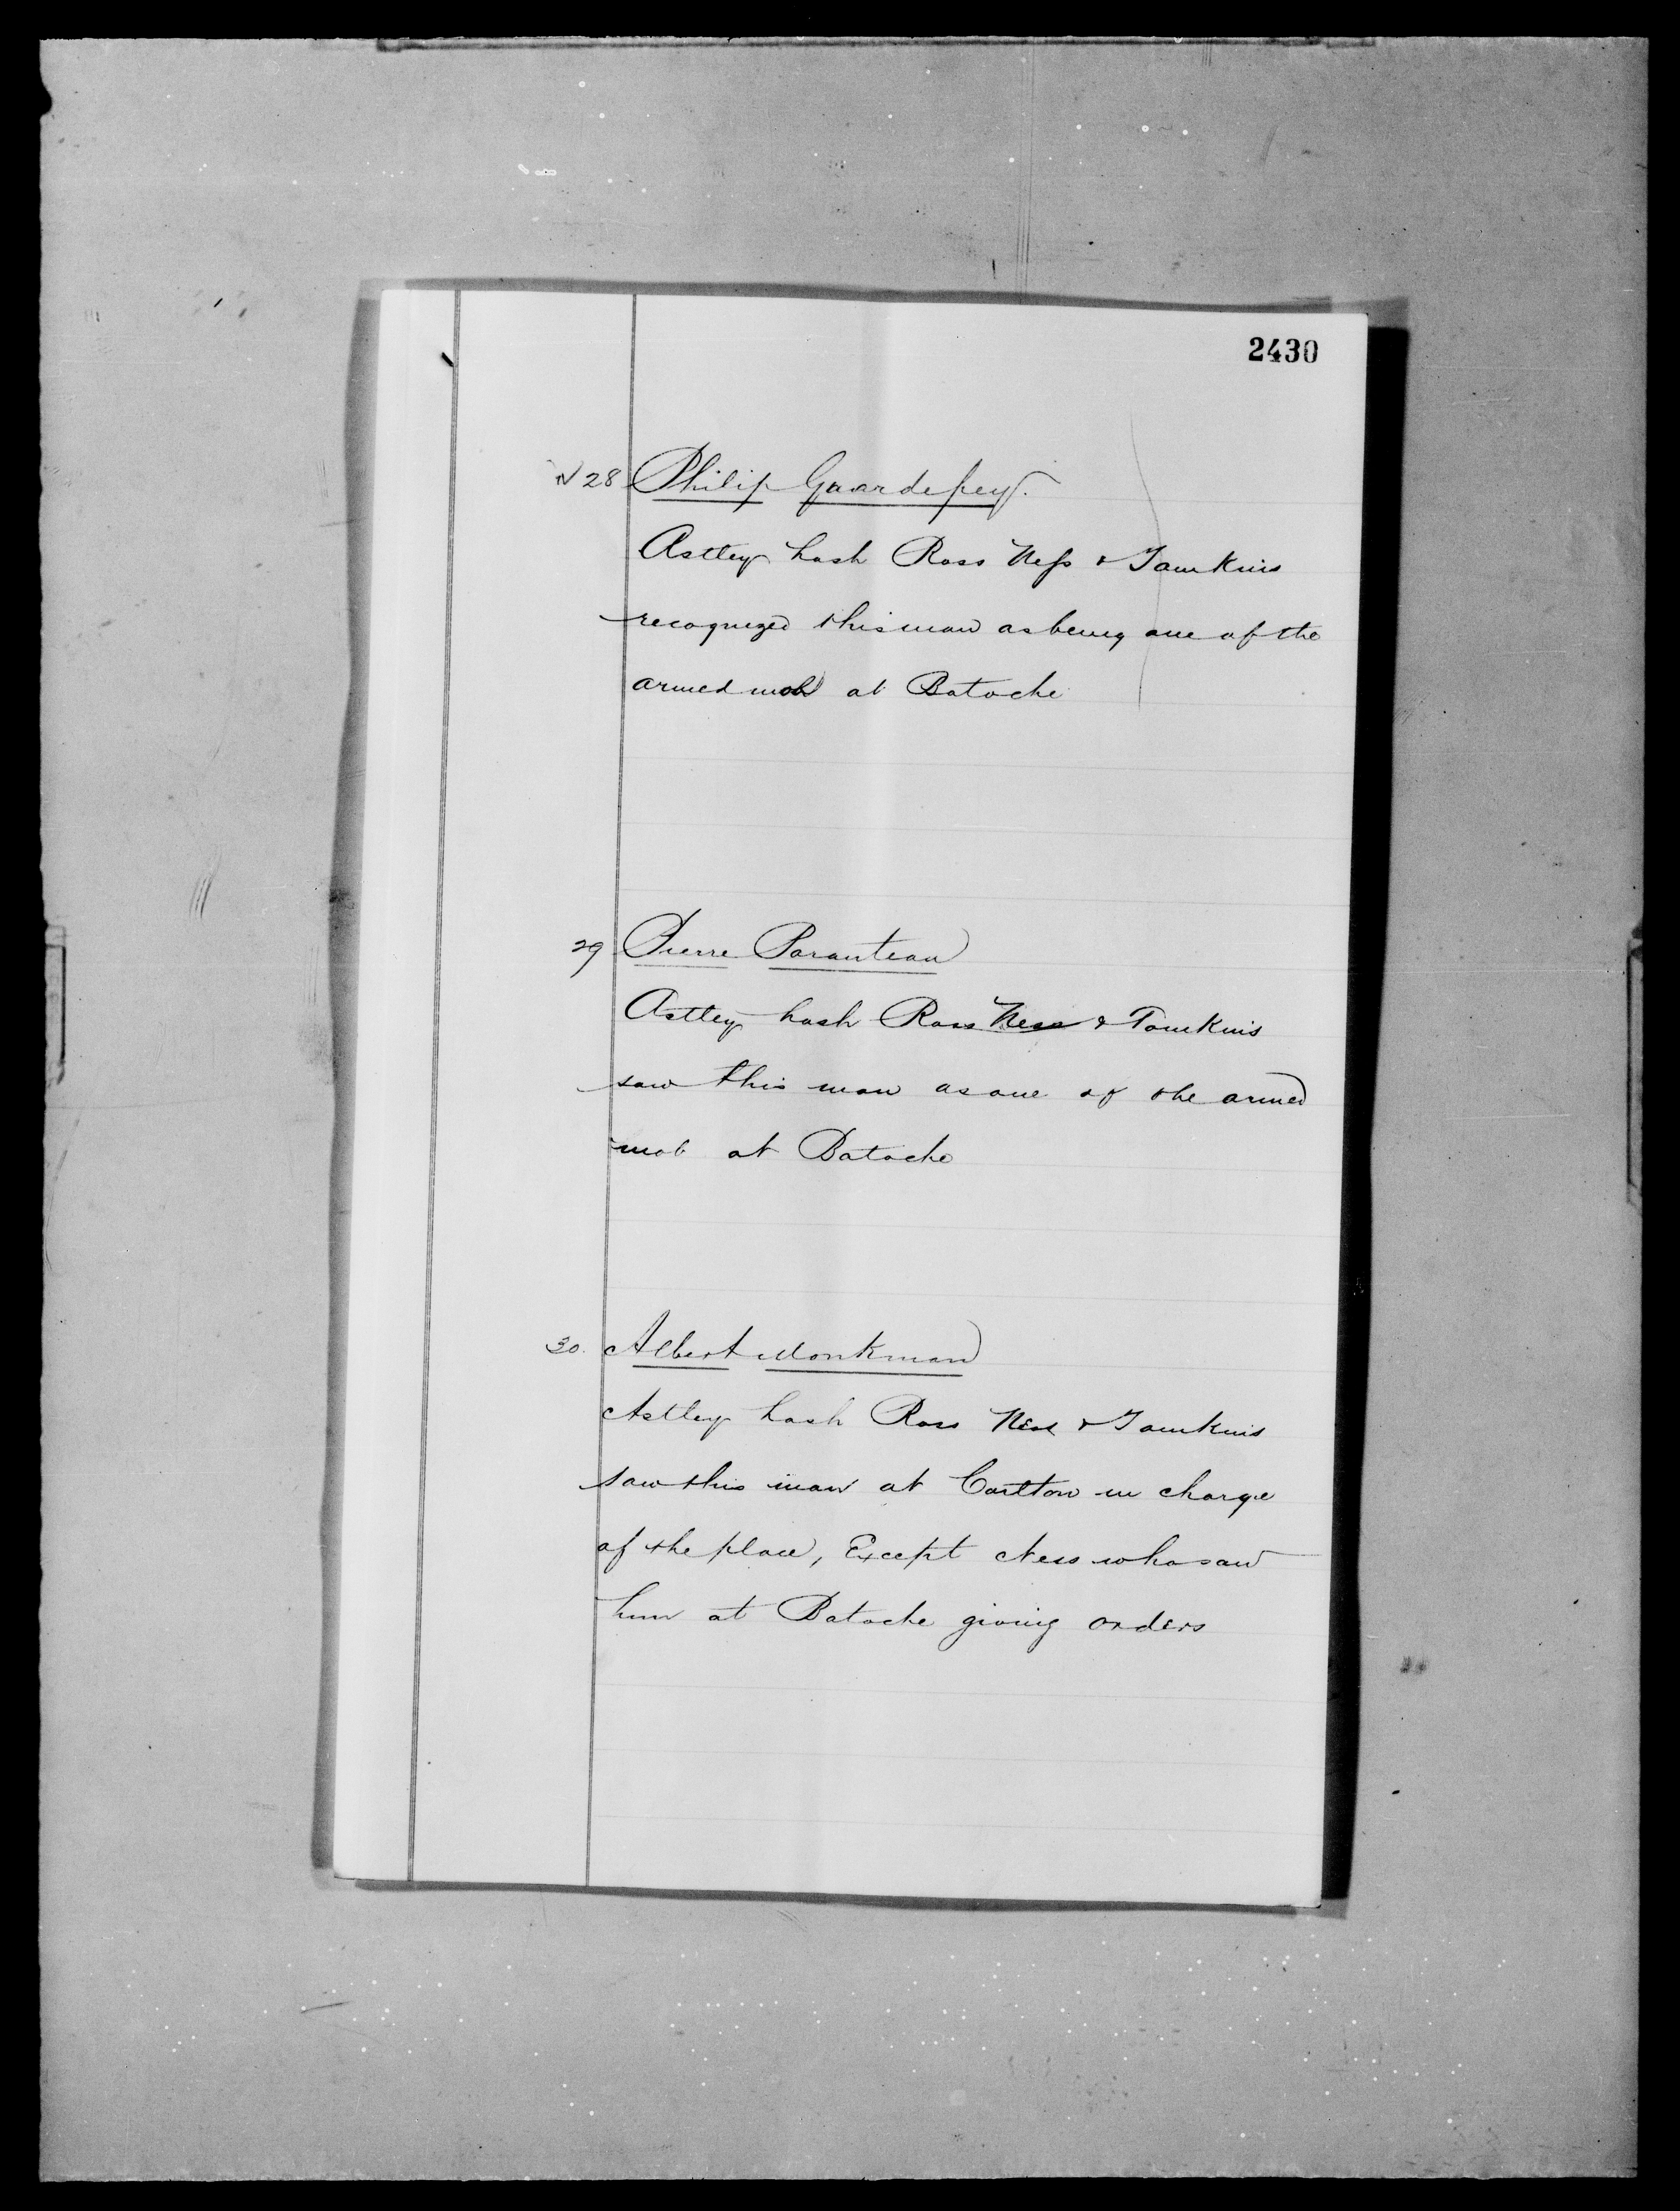 2430
N 28 Philip Guardepey.
Astley Lash Ross Ness & Tomkins
recognized this man as being one of the
armed mob at Batoche
29 Pierre Paranteau
Astley Lash Ross Ness & Tomkins
saw this man as one of the armed
mob at Batoche
30. Albert Monkman
Astley Lash Ross Ness & Tomkins
saw this man at Carlton in charge
of the place, Except Ness who saw
him at Batoche giving orders